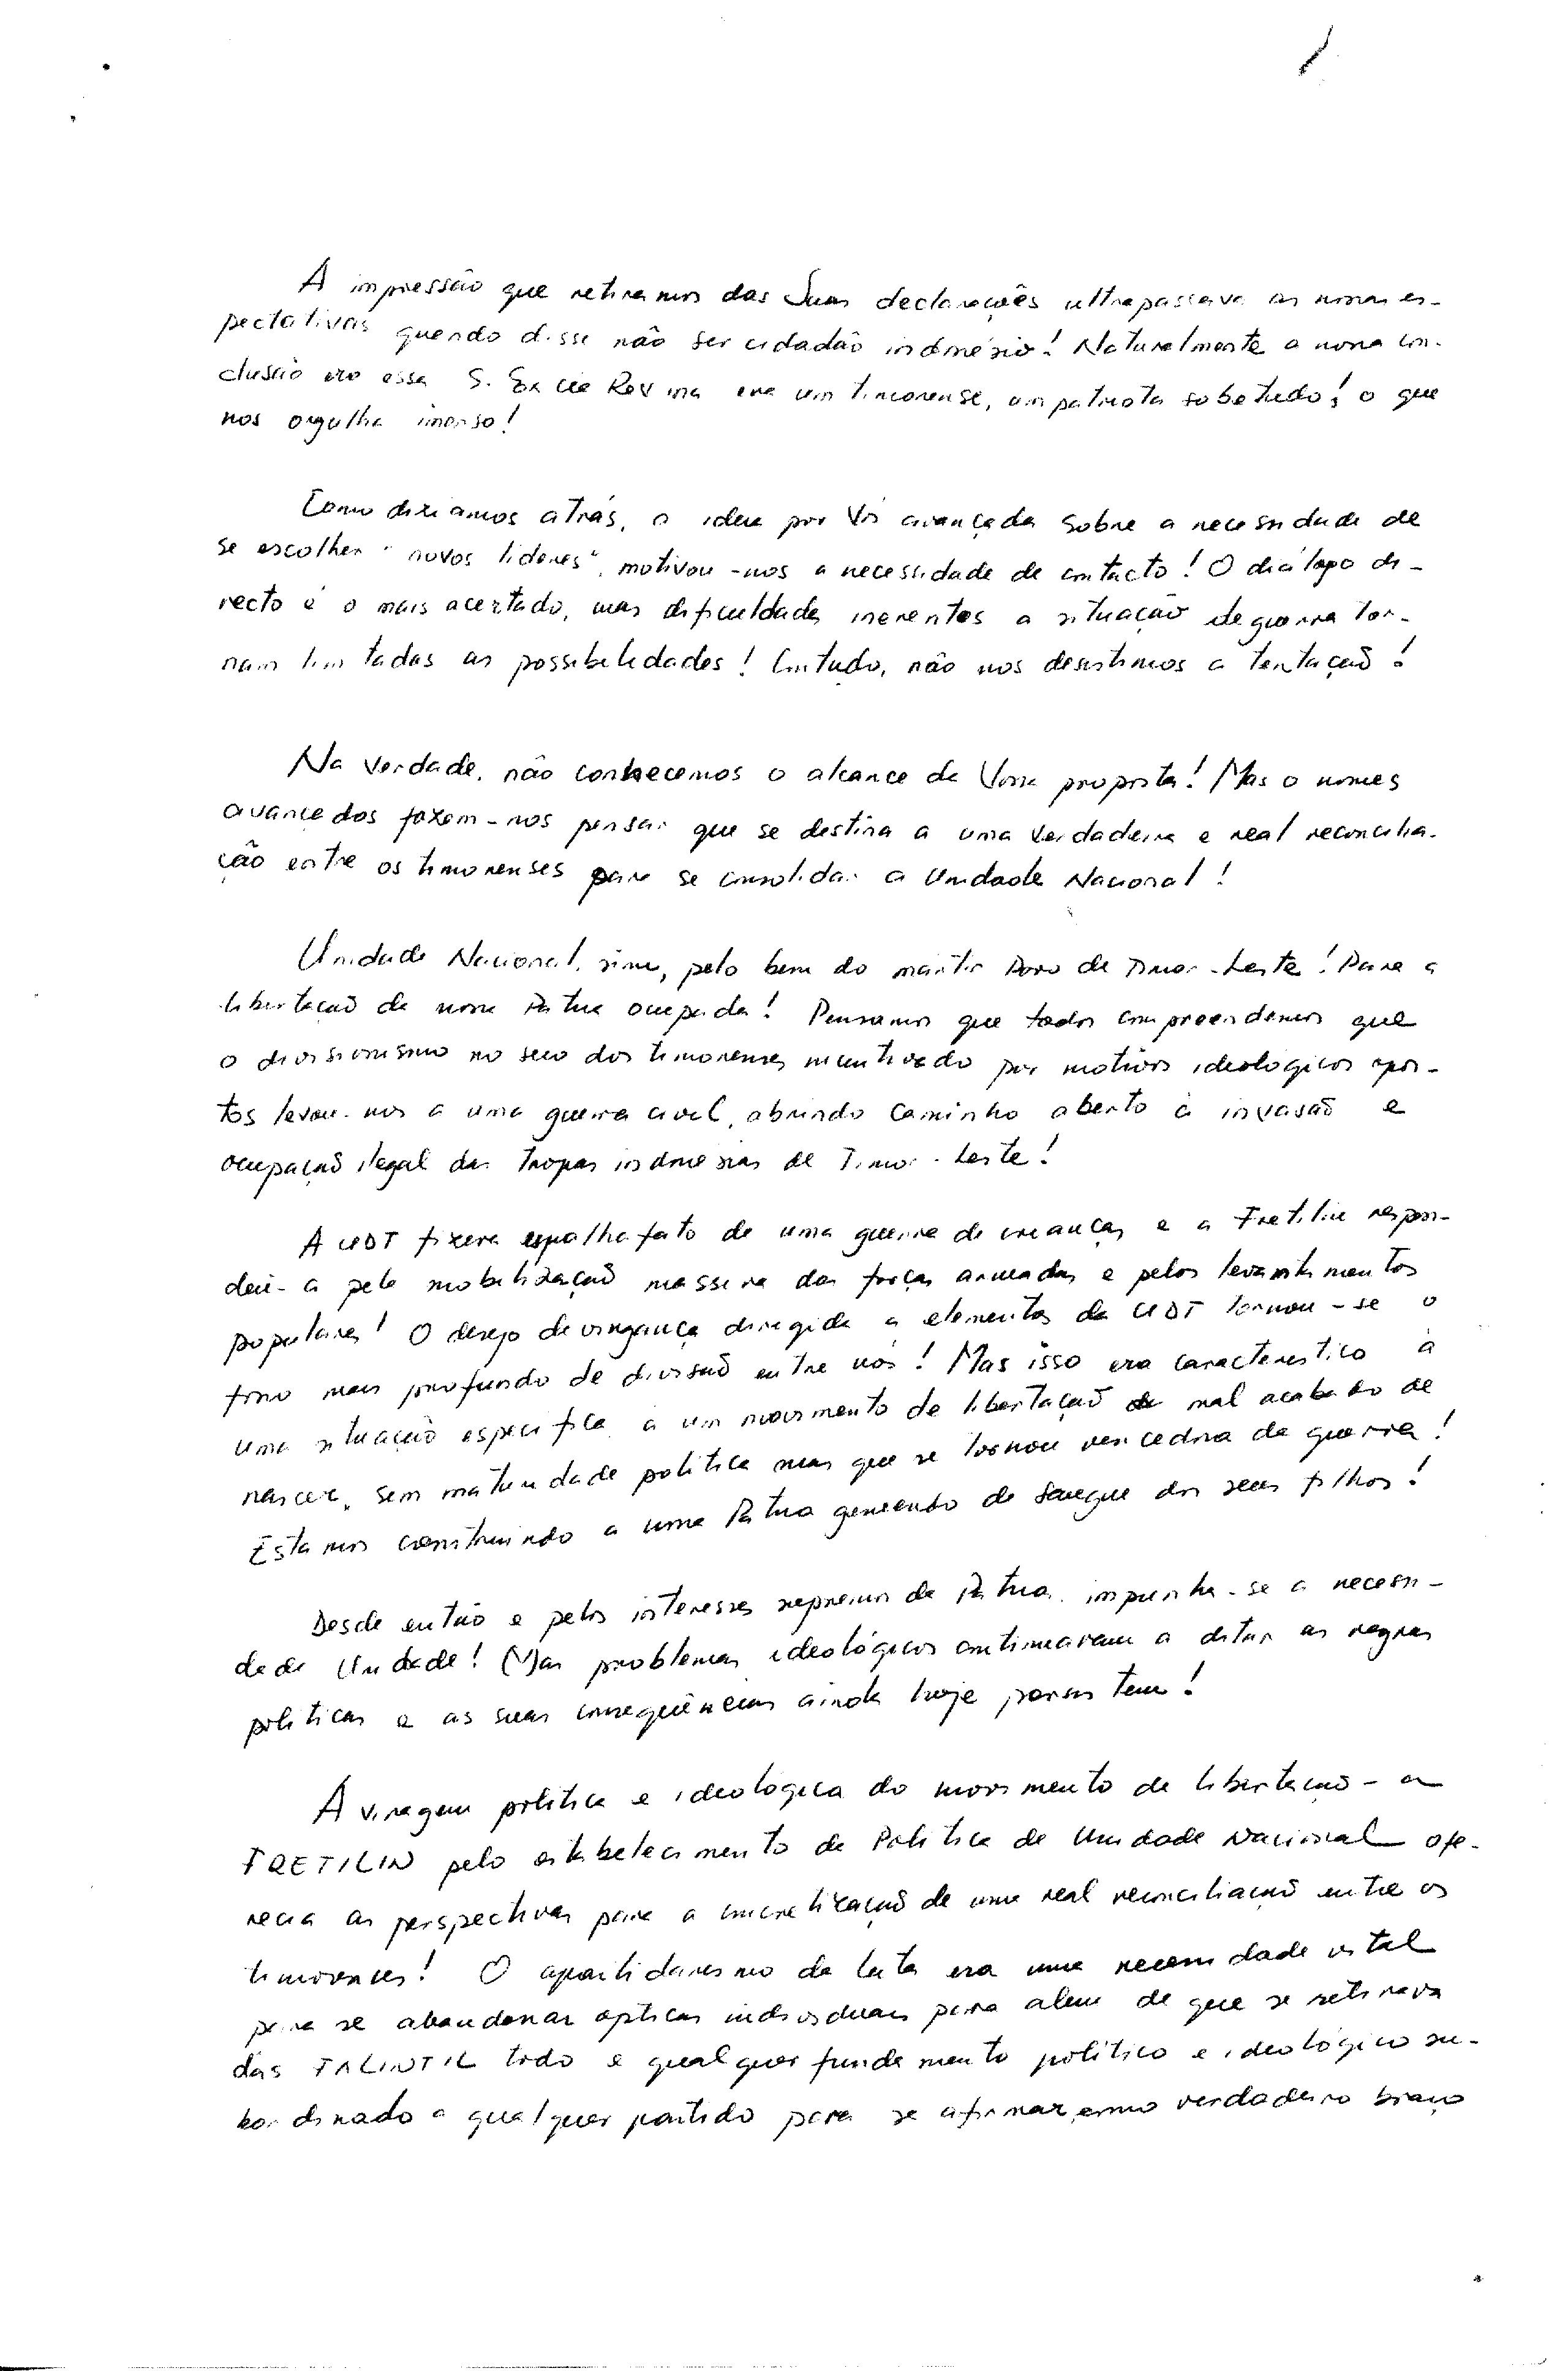 A impressão que retiramos das Suas declarações ultrapassava as nossas es-
pectativas quando disse não ser cidadão indonésio! Naturalmente a nossa con-
clusão era essa S. Ex cia Rev ma era um timorense, um patriota sobetudo! o que
nos orgulha imenso!
Como diziamos atrás, a ideia por Vós avançada sobre a necessidade de
se escolher "novos lideres", motivou-nos a necessidade de contacto! O diálogo di-
recto é o mais acertado, mas dificuldades inerentes a situação de guerra tor-
nam limitadas as possibilidades! Contudo, não nos desistimos a tentação!
Na verdade, não conhecemos o alcance da Vossa proposta! Mas o nomes
avançados fazem-nos pensar que se destina a uma verdadeira e real reconcilia-
ção entre os timorenses para se consolidar a Unidade Nacional!
Unidade Nacional, sim, pelo bem do martir Povo de Timor-Leste! Para a
libertação da nossa Pátria ocupada! Pensamos que todos compreendemos que
o divisionismo no seio dos timorenses incentivado por motivos ideologicos opos-
tos levou-nos a uma guerra civil, abrindo caminho aberto à invasão e
ocupação ilegal das tropas indonésias de Timor-Leste!
A UDT fizera espalhafato de uma guerra de crianças e a Fretilin respon-
deu-a pela mobilização massiva das forças armadas e pelos levantamentos
populares! O desejo de vingança dirigida a elementos da UDT tornou-se o
fosso mais profundo de divisão entre nós! Mas isso era caracteristico à
uma situação especifica, a um movimento de libertação mal acabado de
nascer, sem maturidade politica mas que se tornou vencedora da guerra!
Estamos construindo a uma Pátria gemendo de sangue dos seus filhos!
Desde então e pelos interesses supremos da Pátria, impunha-se a necessi-
dade de Unidade! Mas problemas ideológicos continuaram a ditar as regras
politicas e as suas consequências ainda hoje persistem!
A viragem politica e ideologica do movimento de libertação - a
FRETILIN pelo estabelecimento da Politica de Unidade Nacional ofe-
recia as perspectivas para a concretização de uma real reconciliação entre os
timorenses! O apartidarismo da luta era uma necessidade vital
para se abandonar opticas individuais para alem de que se retirava
das FALINTIL todo e qualquer fundamento politico e ideológico su-
bordinado a qualquer partido para se afirmar como verdadeiro braço